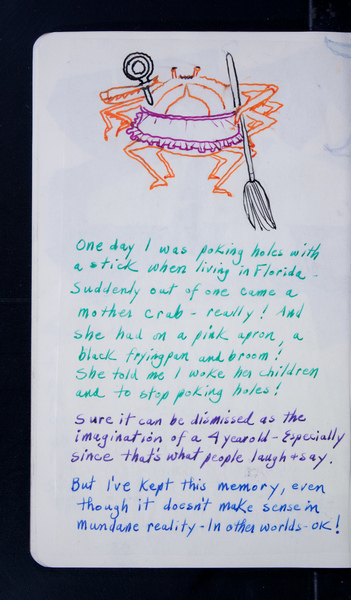 One day I was poking holes with
a stick when living in Florida -
Suddenly out of one came a
mother crab - really! And
she had on a pink apron, a
black fryingpan and broom!
She told me I woke her children
and to stop poking holes!
Sure it can be dismissed as the
imagination of a 4 year old - Especially
since that's what people laugh + say.
But I've kept this memory, even
though it doesn't make sense in
mundane reality - In other worlds - OK!